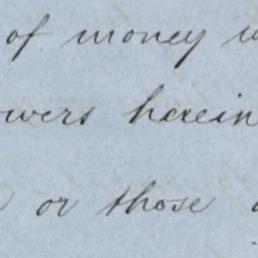 of money
wers herein
or those